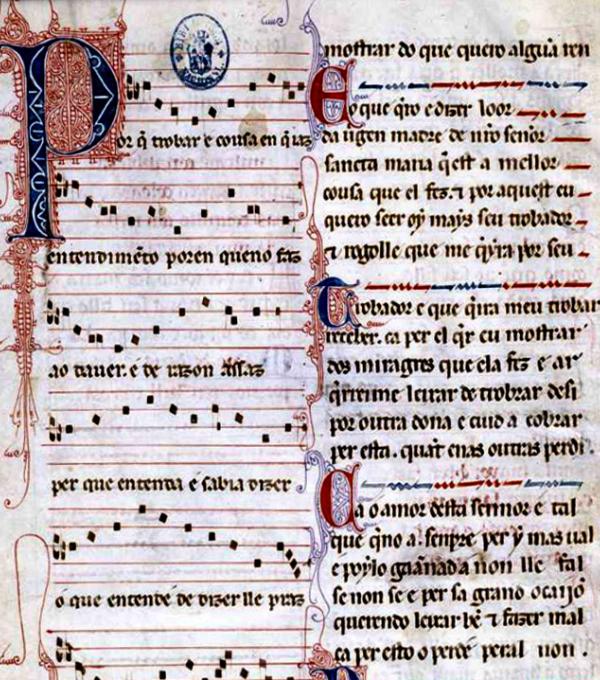 Por q̃ trobar e cousa en q̃ iaz
entendimẽto poren queno faz
ao dauer. e de razon assaz
per que entenda e sabia dizer
o que entende de dizer lle praz
mostrar do que quero algũa ren
E o que q̃ro e dizer loor
da uirgen madre de nr̃o senor
sancta maria q̃ est a mellor
cousa que el fez. ⁊ por aquest eu
quero seer oy mays seu trobador
⁊ rogolle que me q̃ira por seu
Trobador e que q̃ira meu trobar
receber. ca per el q̃r eu mostrar
dos miragres que ela fez e ar
q̃rreime leixar de trobrar desi
por outra dona e cuid a cobrar
per esta. quãt enas outras perdi.
Ca o amor desta sennor e tal
que q̃no a. senpre per y mas ual
e poylo gaãnnada non lle fal
se non se e per sa grand ocaijõ
querendo leixar bẽ ⁊ fazer mal
ca per esto o perde peral non.